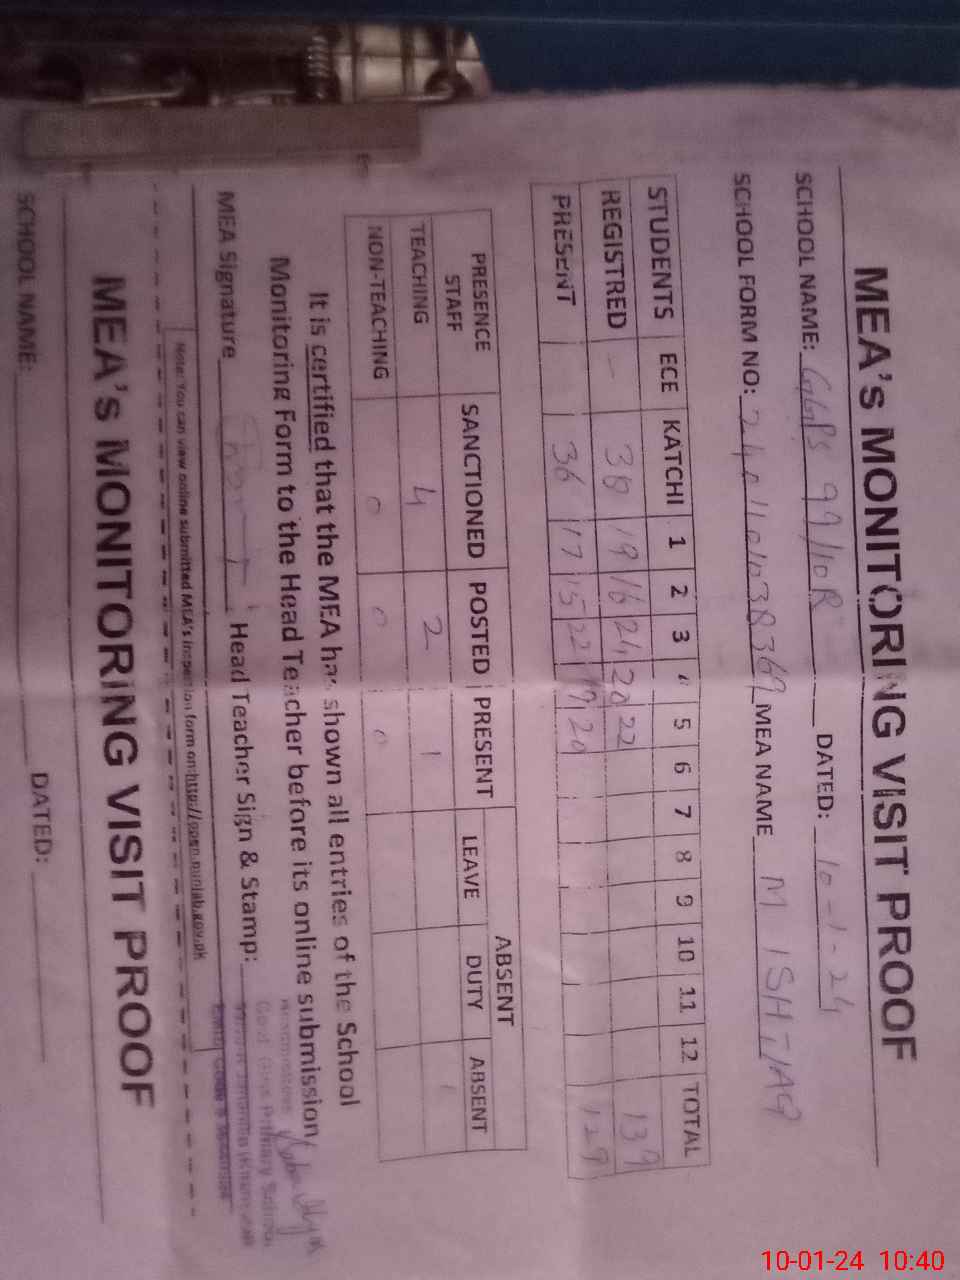 MEA's MONITORING VISIT PROOF
SCHOOL NAME: GGPS 99/10R DATED: 10-1-24
SCHOOL FORM NO: MEA NAME M ISHTIAQ
STUDENTS ECE KATCHI 1 2 3 4 5 6 7 8 9 10 11 12 TOTAL
REGISTRED - 38 19 16 24 20 22 139
PRESENT 36 17 15 22 19 20 129
PRESENCE STAFF SANCTIONED POSTED PRESENT ABSENT
LEAVE DUTY ABSENT
TEACHING 4 2 1 1
NON-TEACHING 0 0 0
It is certified that the MEA has shown all entries of the School
Monitoring Form to the Head Teacher before its online submission
MEA Signature Head Teacher Sign & Stamp:
Note: You can view online submitted MEA's inspection form on:http://open.punjab.gov.pk
MEA's MONITORING VISIT PROOF
SCHOOL NAME: DATED:
10-01-24 10:40